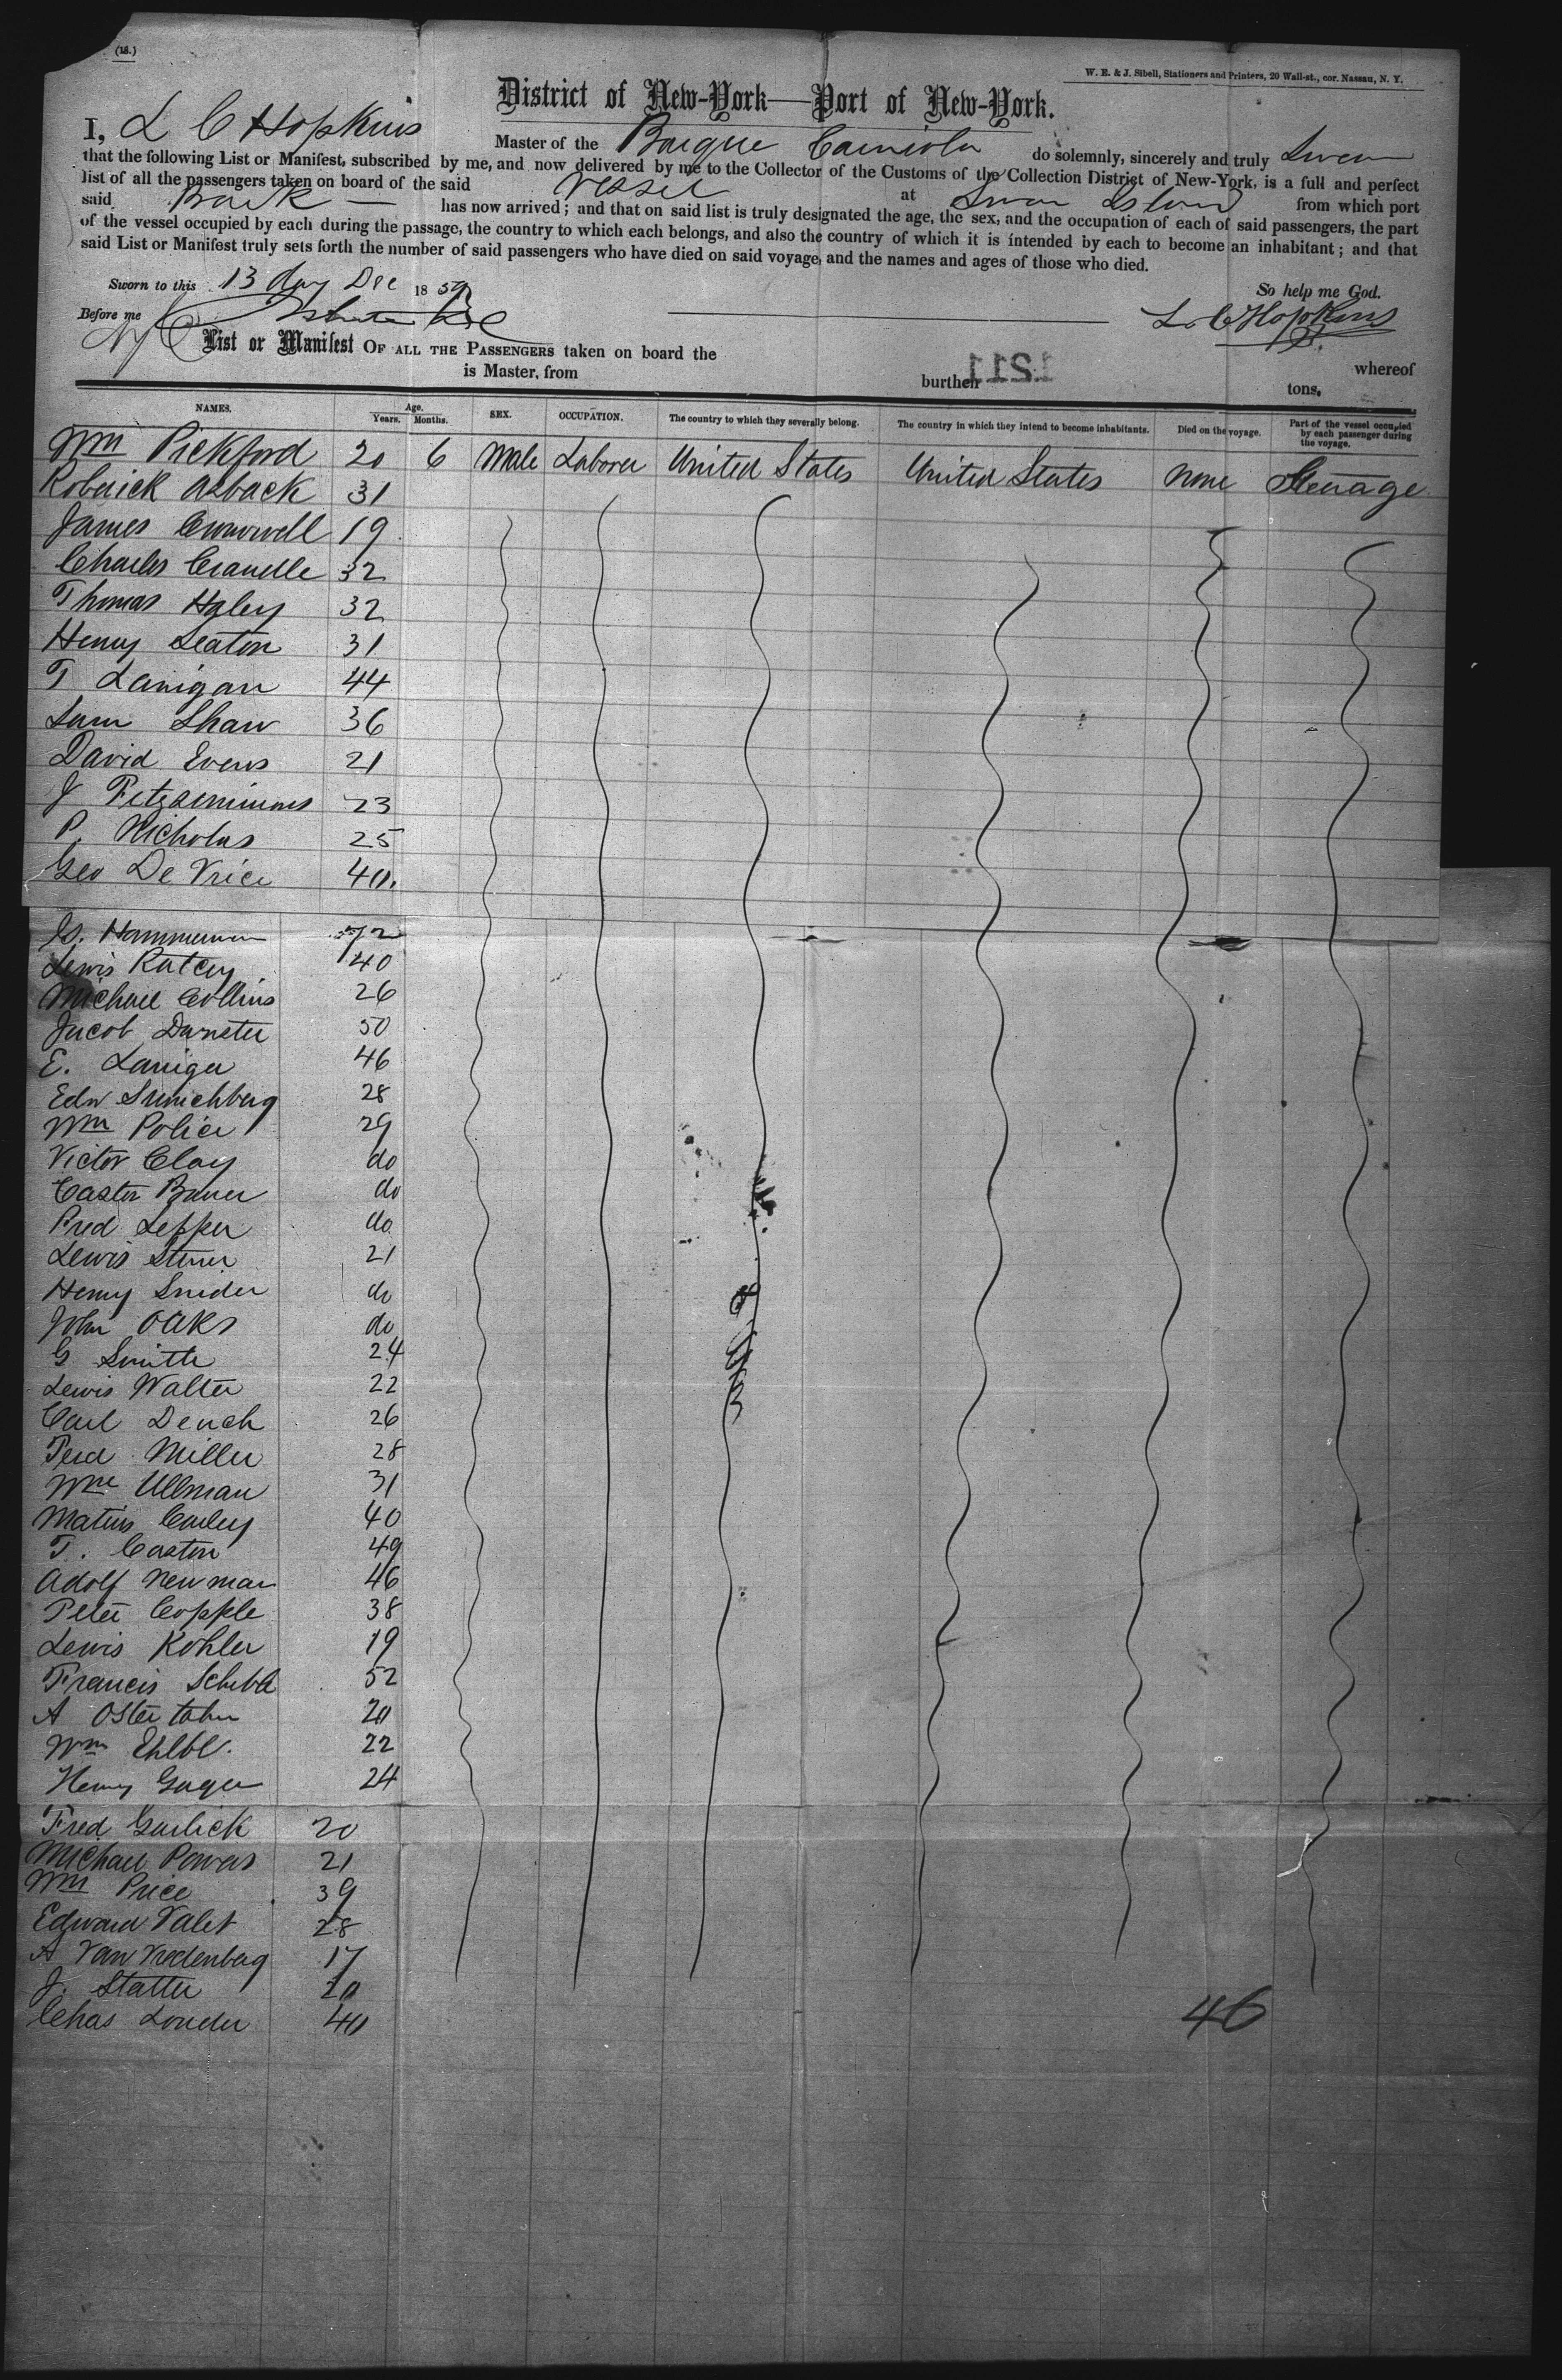 (18.)
W. E. & J. Sibell, Stationers and Printers, 20 Wall-st., cor. Nassau, N. Y.
District of New-York—Port of New-York.
I, L C Hopkins Master of the Barque do solemnly, sincerely and truly Swear
that the following List or Manifest, subscribed by me, and now delivered by me to the Collector of the Customs of the Collection District of New-York, is a full and perfect
list of all the passengers taken on board of the said Vessel at Swan Island from which port
said Bark — has now arrived; and that on said list is truly designated the age, the sex, and the occupation of each of said passengers, the part
of the vessel occupied by each during the passage, the country to which each belongs, and also the country of which it is intended by each to become an inhabitant; and that
said List or Manifest truly sets forth the number of said passengers who have died on said voyage, and the names and ages of those who died.
Sworn to this 13 day Dec 1859 So help me God.
Before me L C Hopkins
List or Manifest OF ALL THE PASSENGERS taken on board the whereof
is Master, from burthen 1211 tons.
NAMES. Age. Years. Months. SEX. OCCUPATION. The country to which they severally belong. The country in which they intend to become inhabitants. Died on the voyage. Part of the vessel occupied by each passenger during the voyage.
Wm Pickford 20 6 Male Laborer United States United States None Steerage
Roderick 31
James 19
Charles 32
Thomas Haley 32
Henry Seaton 31
T Lanigan 44
Sam Shaw 36
David Evens 21
J Fitzsemimons 23
P. Nicholas 25
Geo De Vrice 40.
G.
Lewis 40
Michael Collins 26
Jacob 50
E. 46
Edw 28
Wm Police 29
Victor Clay do
Castor do
Fred Lepper do
Lewis 21
Henry Snider do
John Oaks do
G Smith 24
Lewis Walter 22
Carl 26
Ferd Miller 28
Wm Ullman 31
40
T. Caston 49
Adolf Newman 46
Peter Copple 38
Lewis Kohler 19
Francis 52
A 20
Wm 22
Henry 24
Fred Garlick 20
Michael Powers 21
Wm Price 39
Edward Valet 28
A Van Vredenberg 17
J. Statter 20
Chas Louder 40
46